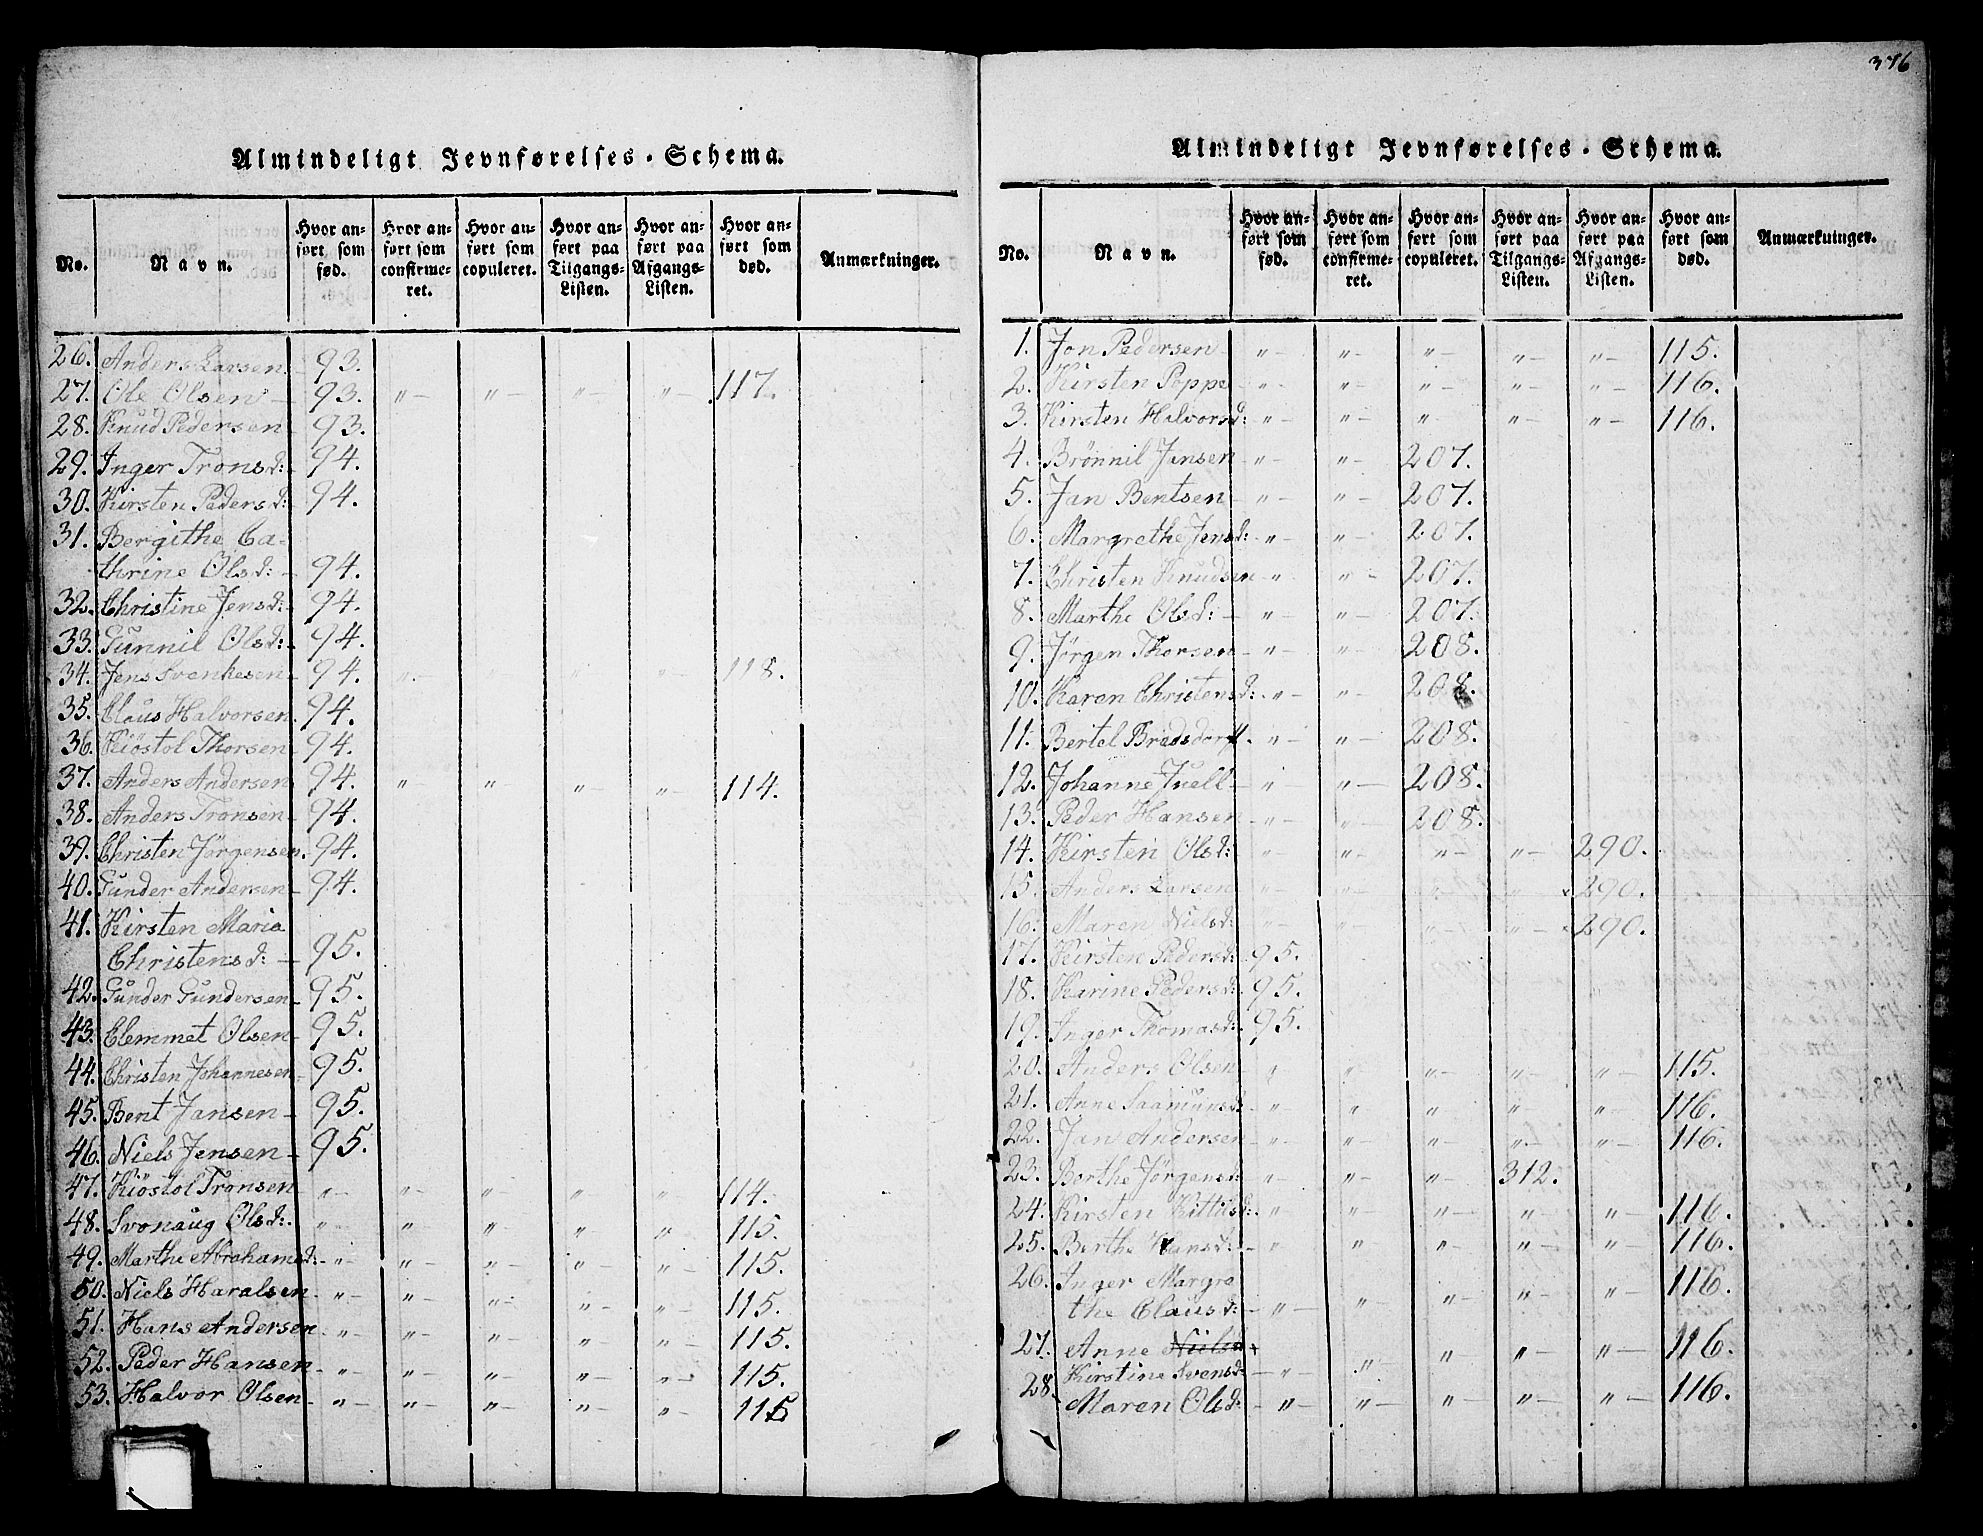 Almindeligt Jevnførelses-Schema.
No. Navn. Hvor anført som fød. Hvor anført som confirmeret. Hvor anført som copuleret. Hvor anført paa Tilgangs-Listen. Hvor anført paa Afgangs-Listen. Hvor anført som død. Anmærkninger.
26. Anders Larsen 93.
27. Ole Olsen 93. " " " " 117.
28. Knud Pedersen 93.
29. Inger Tronsd: 94.
30. Kirsten Pedersd: 94.
31. Bergithe Ca-
thrine Olsd: 94.
32. Christine Jensd: 94.
33. Gunnil Olsd: 94.
34. Jens Svenkesen 94. " " " " 118.
35. Claus Halvorsen 94.
36. Kiöstol Thorsen 94.
37. Anders Andersen 94. " " " " 114.
38. Anders Tronsen 94.
39. Christen Jörgensen. 94.
40. Gunder Andersen 94.
41. Kirsten Maria
Christensd: 95.
42. Gunder Gundersen 95.
43. Clemmet Olsen 95.
44. Christen Johannesen 95.
45. Bent Jansen 95.
46. Niels Jensen 95.
47. Kiöstol Tronsen " " " " " 114.
48. Svonaug Olsd: " " " " " 115.
49. Marthe Abrahamsd: " " " " " 115.
50. Niels Haralsen " " " " " 115.
51. Hans Andersen " " " " " 115.
52. Peder Hansen " " " " " 115.
53. Halvor Olsen " " " " " 115
376
Almindeligt Jevnførelses-Schema.
No. Navn. Hvor anført som fød. Hvor anført som confirmeret. Hvor anført som copuleret. Hvor anført paa Tilgangs-Listen. Hvor anført paa Afgangs-Listen. Hvor anført som død. Anmærkninger.
1. Jon Pedersen " " " " " 115.
2. Kirsten Poppe " " " " " 116.
3. Kirsten Halvorsd: " " " " " 116.
4. Brönnil Jensen " " 207.
5. Jan Bentsen " " 207.
6. Margrethe Jensd: " " 207.
7. Christen Knudsen " " 207.
8. Marthe Olsd: " " 207.
9. Jörgen Thorsen " " 208.
10. Karen Christensd: " " 208.
11. Bertel Bredsdorff. " " 208.
12. Johanne Juell " " 208.
13. Peder Hansen " " 208.
14. Kirsten Olsd: " " " " 290.
15. Anders Larsen " " " " 290.
16. Maren Nielsd: " " " " 290.
17. Kirsten Pedersd: 95.
18. Karine Pedersd: 95.
19. Inger Thomasd: 95.
20. Anders Olsen " " " " " 115.
21. Anne Saamunsd: " " " " " 116.
22. Jan Andersen " " " " " 116.
23. Berthe Jörgensd: " " " 312.
24. Kirsten Kittilsd: " " " " " 116.
25. Berthe Hansd: " " " " " 116.
26. Inger Margre
the Clausd: " " " " " 116.
27. Anne Nielsd:
Kirstine Svensd: " " " " " 116.
28. Maren Olsd: " " " " " 116.